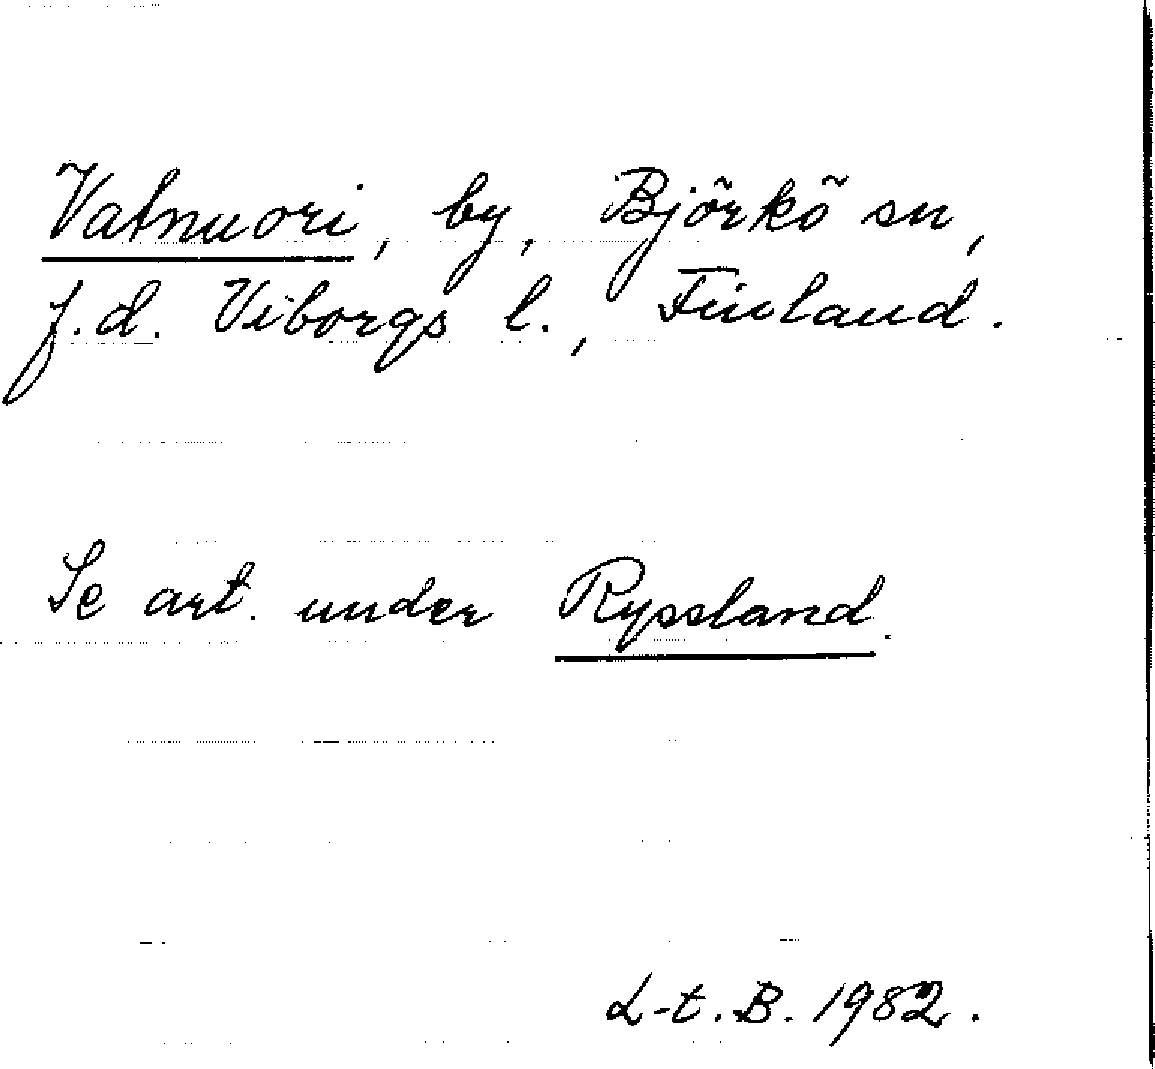 Vatnuori, by, Björkö sn,
f.d. Viborgs l., Finland.
Se art. under Ryssland.
L-t. B. 1982.